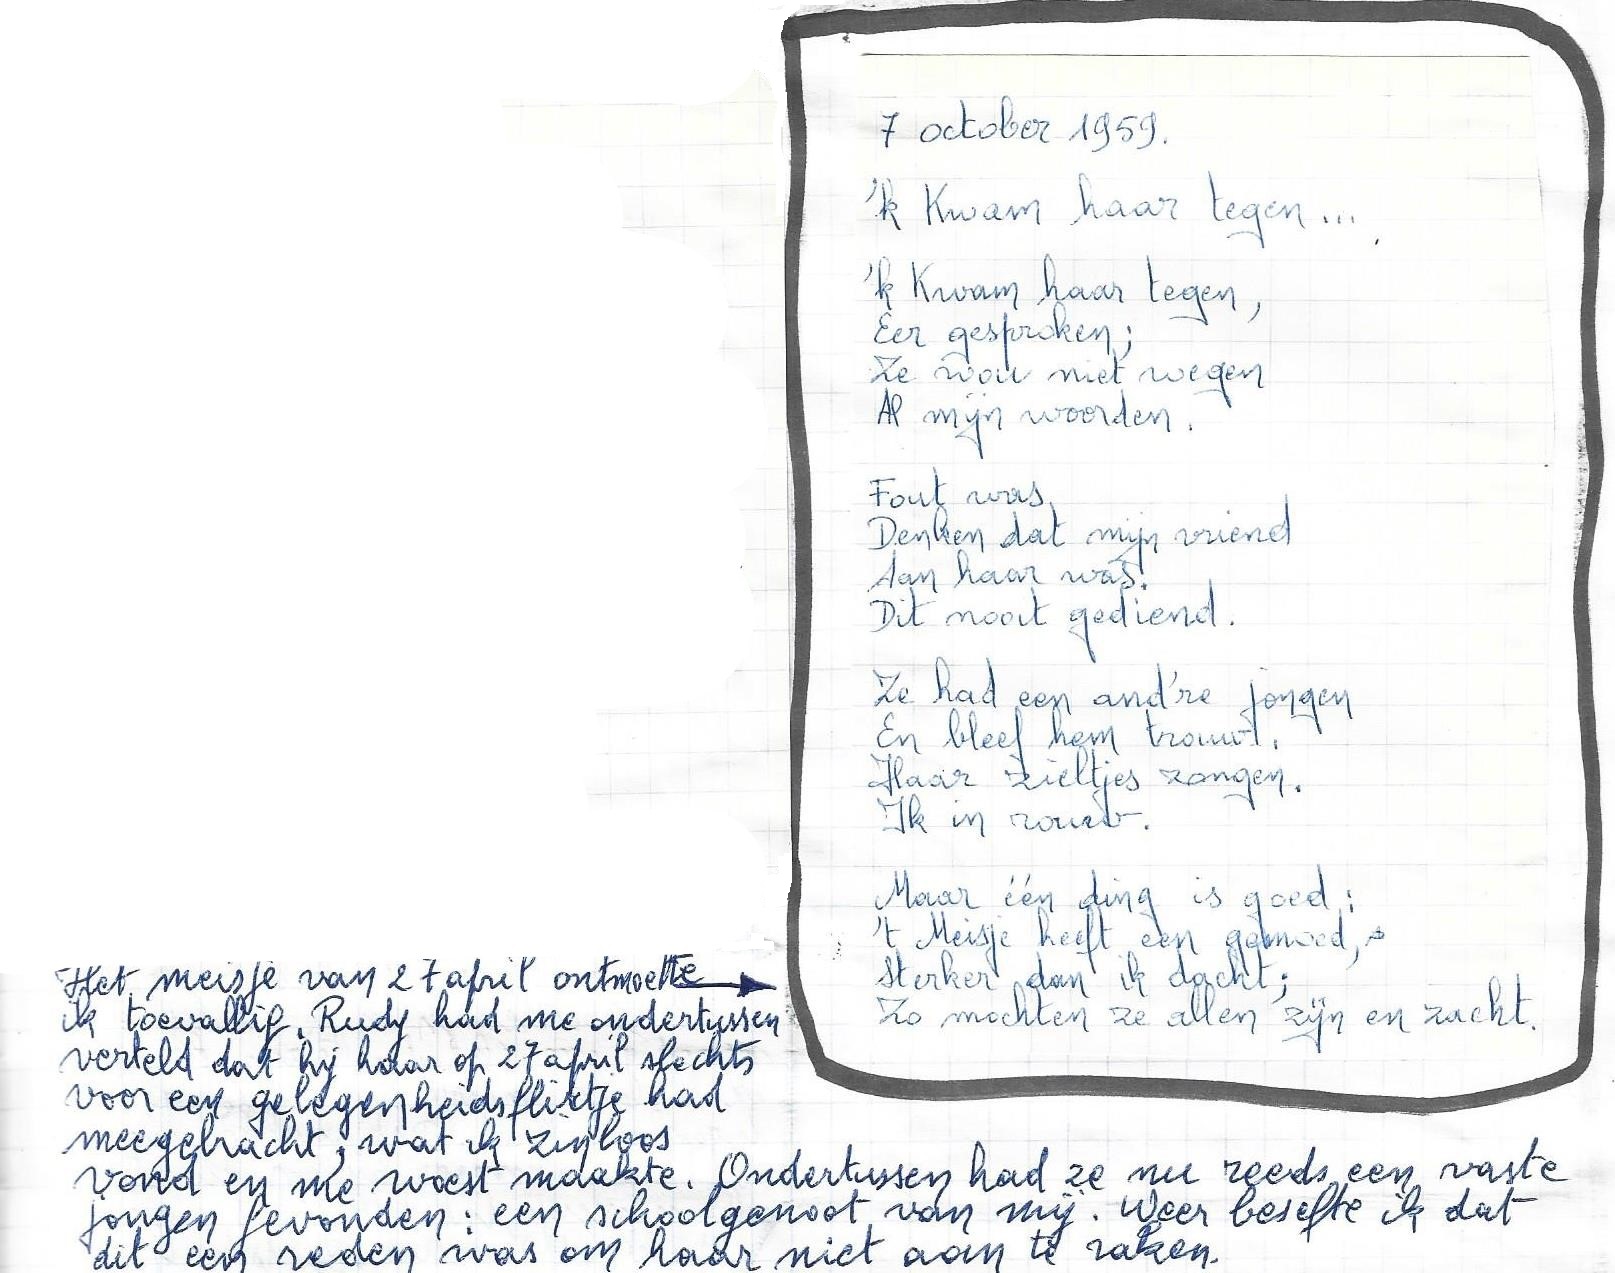 7 october 1959.
'k Kwam haar tegen...
'k Kwam haar tegen,
Eer gesproken;
Ze wou niet wegen
Al mijn woorden.
Fout was
Denken dat mijn vriend
Aan haar was.
Dit nooit gediend.
Ze had een and're jongen
En bleef hem trouw.
Haar zieltjes zongen.
Ik in rouw.
Maar één ding is goed:
't Meisje heeft een gemoed,
Sterker dan ik dacht;
Zo mochten ze allen zijn en zacht.
Het meisje van 27 april ontmoette
ik toevallig. Rudy had me ondertussen
verteld dat hij haar op 27 april slechts
voor een gelegenheidsflirtje had
meegebracht, wat ik zinloos
vond en me woest maakte. Ondertussen had ze nu reeds een vaste
jongen gevonden: een schoolgenoot van mij. Weer besefte ik dat
dit een reden was om haar niet aan te raken.